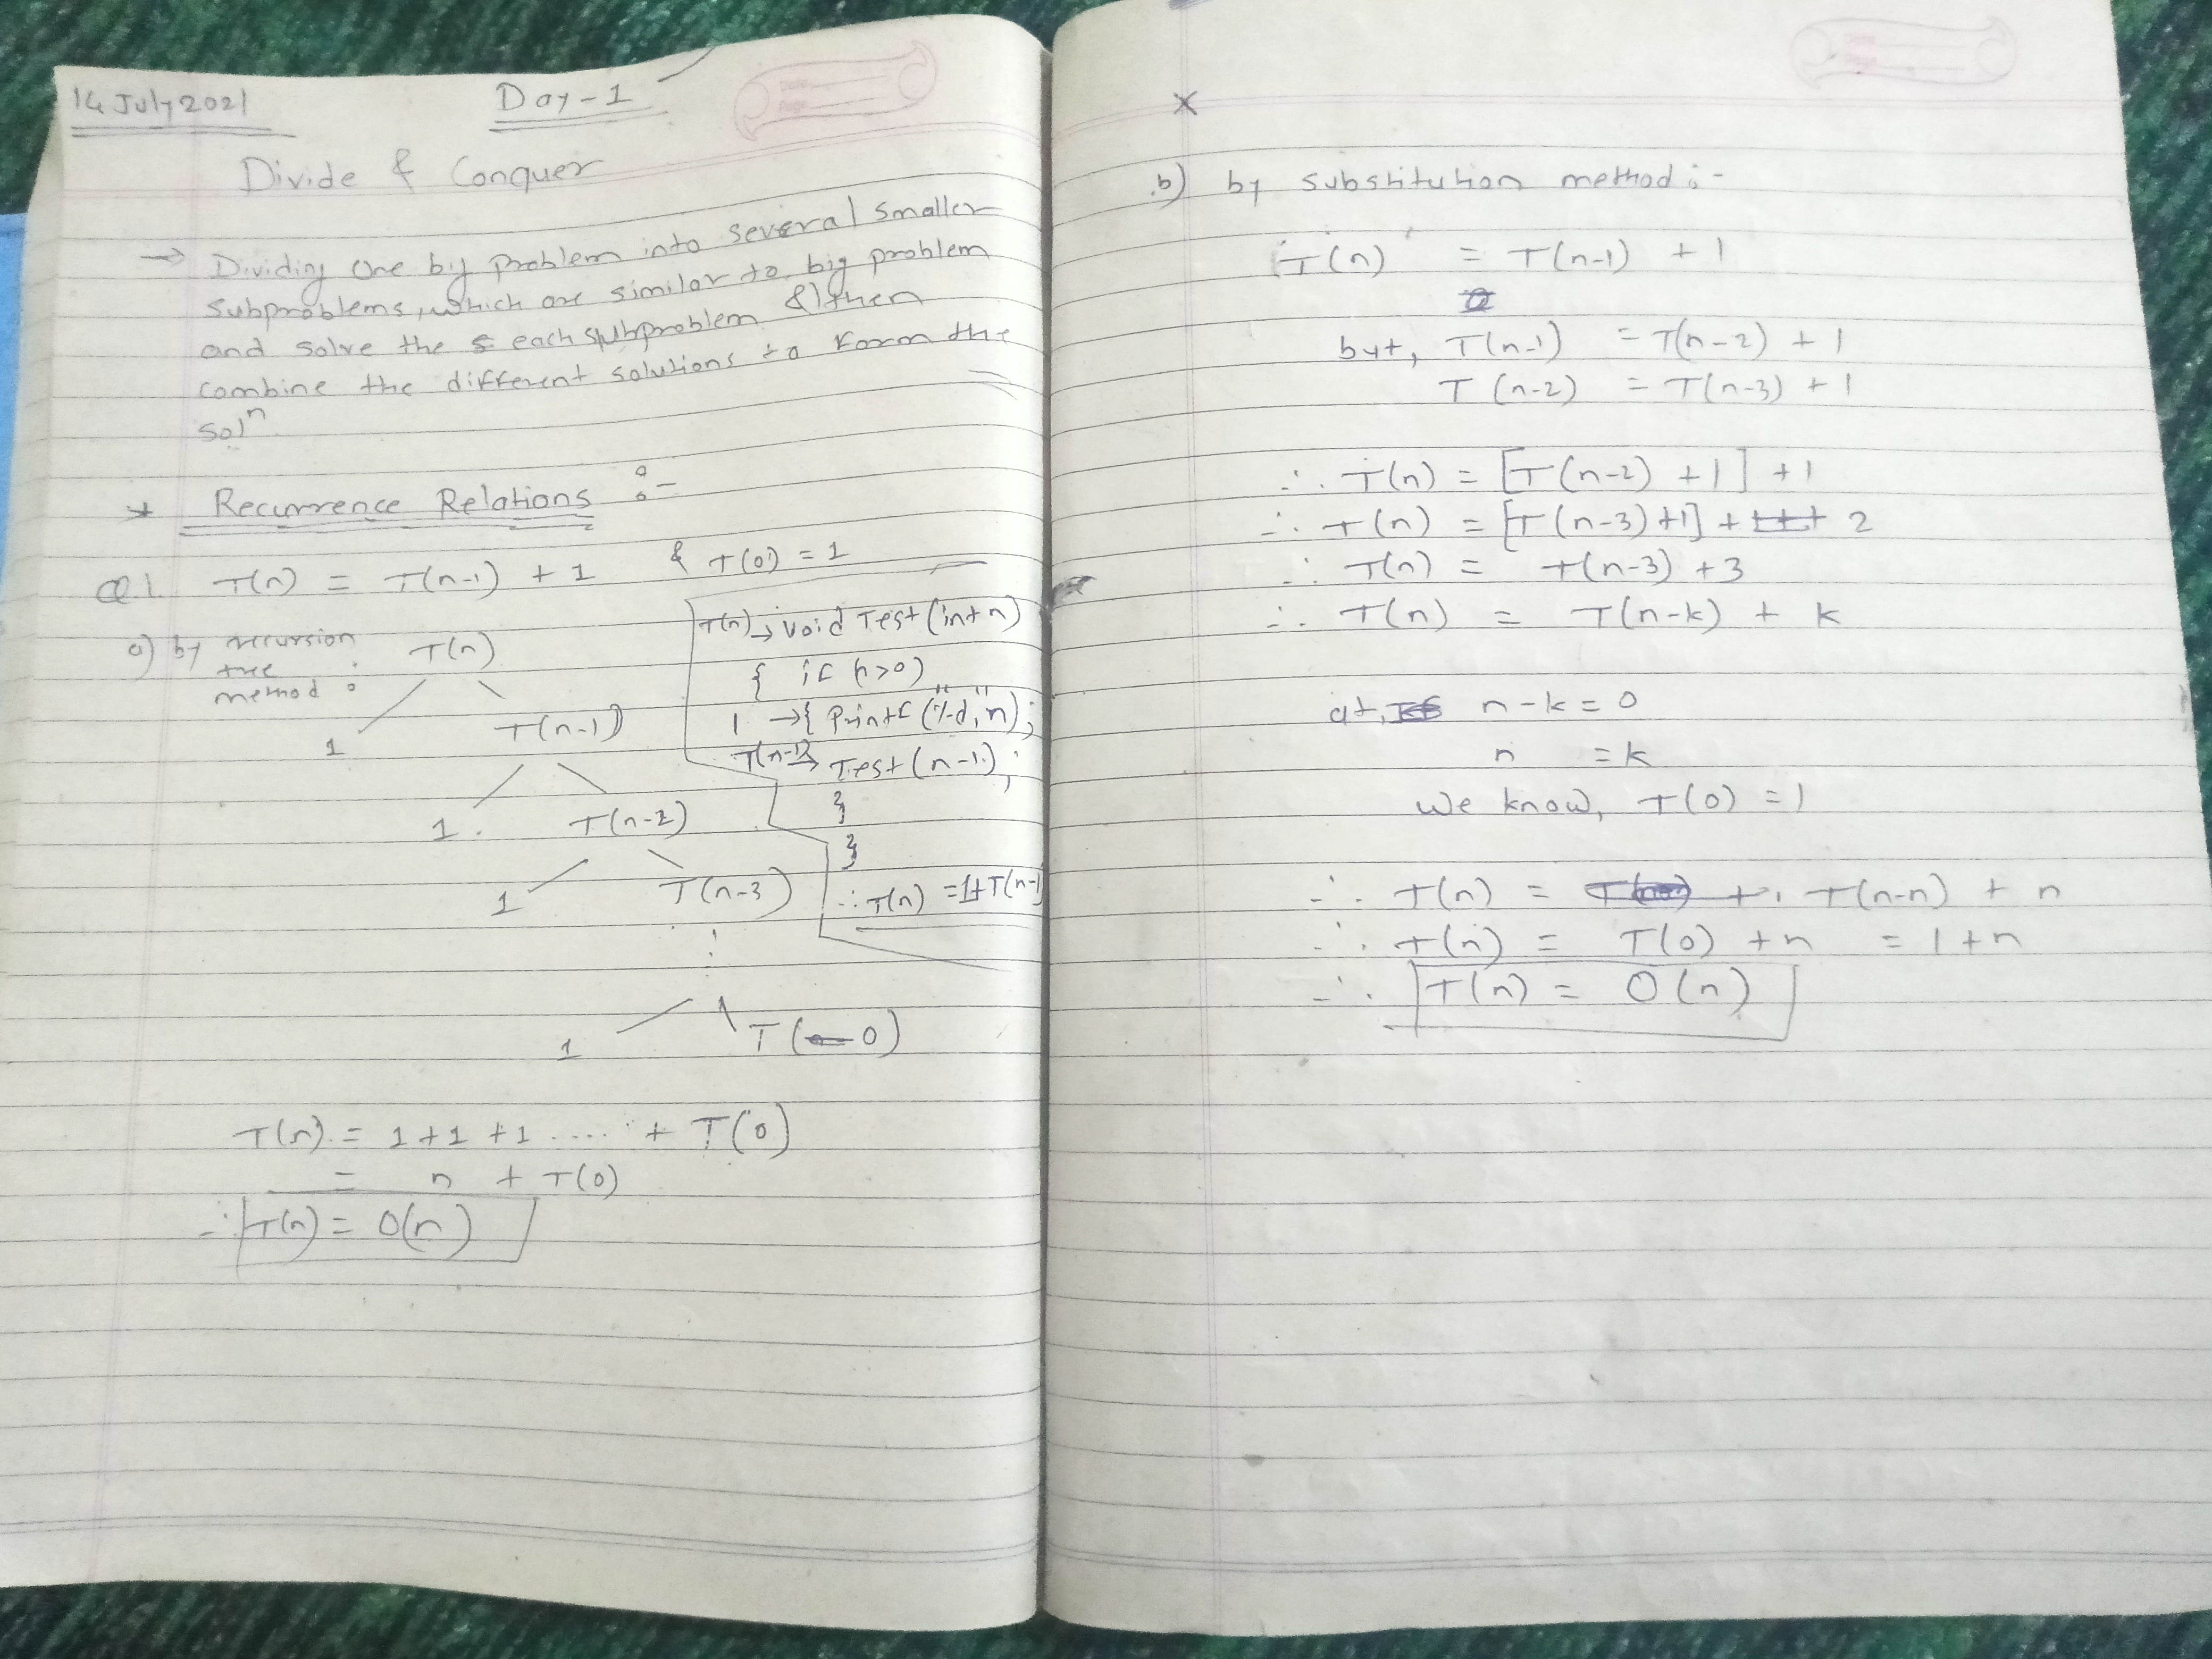 14 July 2021
Day-1
Divide & Conquer
→ Dividing One big Problem into several smaller
subproblems, which are similar to big problem
and solve the each subproblem & then
combine the different solutions to form the
solⁿ
* Recurrence Relations :-
Q1. T(n) = T(n-1) + 1 & T(0) = 1
a) by recursion
tree
method :
T(n)
1 T(n-1)
1 T(n-2)
1 T(n-3)
⋮
1 T(0)
T(n) → void Test (int n)
{ if (n>0)
1 → { Printf ("%d", n);
T(n-1) → Test (n-1);
}
}
∴ T(n) = 1+T(n-1)
T(n) = 1+1+1 .... + T(0)
= n + T(0)
∴ T(n) = O(n)
x
b) by substitution method :-
T(n) = T(n-1) + 1
but, T(n-1) = T(n-2) + 1
T(n-2) = T(n-3) + 1
∴ T(n) = [T(n-2) +1] +1
∴ T(n) = [T(n-3)+1] + 2
∴ T(n) = T(n-3) +3
∴ T(n) = T(n-k) + k
at, n-k = 0
n = k
We know, T(0) = 1
∴ T(n) = T(n-n) + n
∴ T(n) = T(0) + n = 1+n
∴ T(n) = O(n)